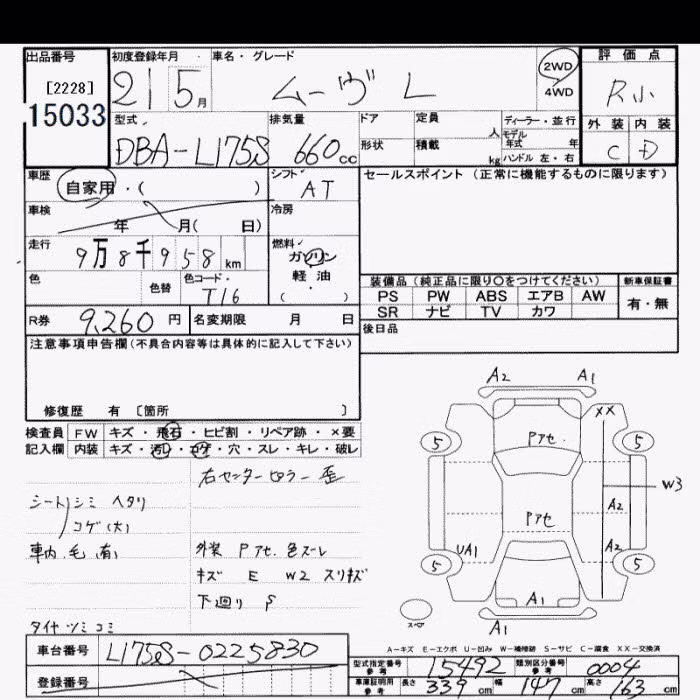 出品番号
[2228]
15033
初度登録年月
21 5月
車名・グレード
ムーヴ L
2WD
4WD
評価点
R小
外装 内装
C D
型式
DBA-L175S
排気量
660cc
ドア
形状
定員
人
積載
kg
ディーラー・並行
モデル年式 年
ハンドル 左・右
車歴
自家用・( )
シフト
AT
車検
年 月( 日)
冷房
走行
9万8千958km
燃料
ガソリン
軽油
( )
色
色替
色コード
T16
R券 9,260円
名変期限 月 日
セールスポイント(正常に機能するものに限ります)
装備品(純正品に限り○をつけてください)
PS PW ABS エアB AW
SR ナビ TV カワ
新車保証書
有・無
後日品
注意事項申告欄(不具合内容等は具体的に記入して下さい)
修復歴 有 [箇所 ]
検査員記入欄
FW キズ・飛石・ヒビ割・リペア跡・×要
内装 キズ・汚レ・コゲ・穴・スレ・キレ・破レ
右センターピラー 歪
シート シミ ヘタリ
コゲ(大)
車内 毛(有)
外装 Pアセ 色ズレ
キズ E W2 スリキズ
下廻り S
タイヤ ツミコミ
A2 A1
XX
5 Pアセ 5
W3
Pアセ A2
UA1 A2
5 5
A1
スペア
A1
A-キズ E-エクボ U-凹み W-補修跡 S-サビ C-腐食 XX-交換済
車台番号 L175S-0225830
登録番号
型式指定番号 参考 15492
類別区分番号 参考 0004
車庫証明用 参考 長さ 339cm 幅 147cm 高さ 163cm